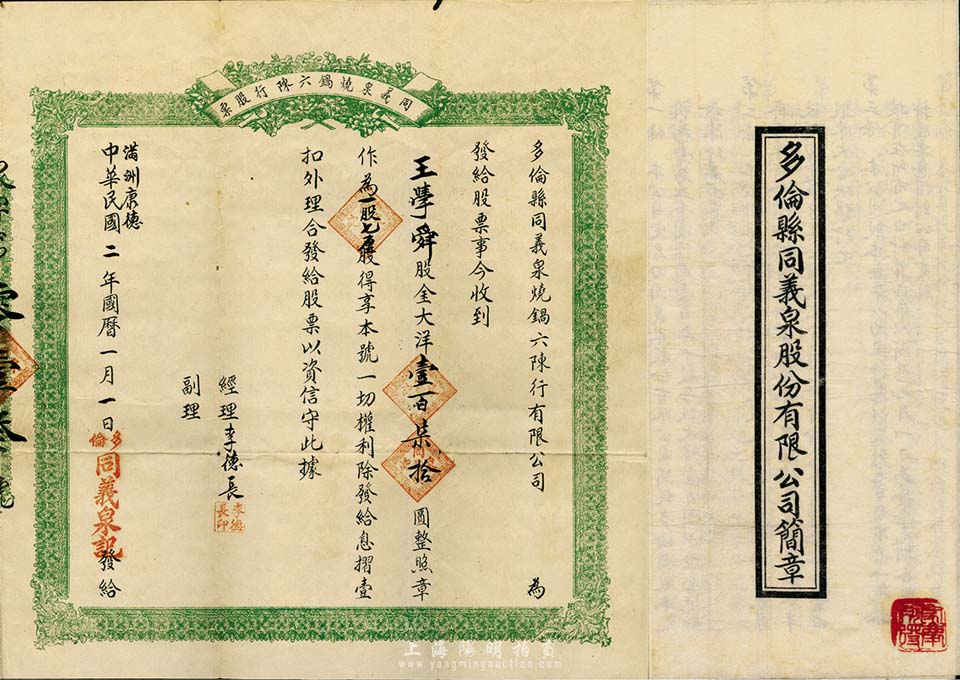 同義泉燒鍋六陳行股票
多倫縣同義泉燒鍋六陳行有限公司 為
發給股票事今收到
王學舜股金大洋壹百柒拾圓整照章
作為一股七厘股得享本號一切權利除發給息摺壹
扣外理合發給股票以資信守此據
經理李德長
李德長印
副理
滿洲康德
中華民國二年國曆一月一日
多倫
同義泉記
發給
多倫縣同義泉股份有限公司簡章
上海陽明拍賣
www.yangmingauction.com